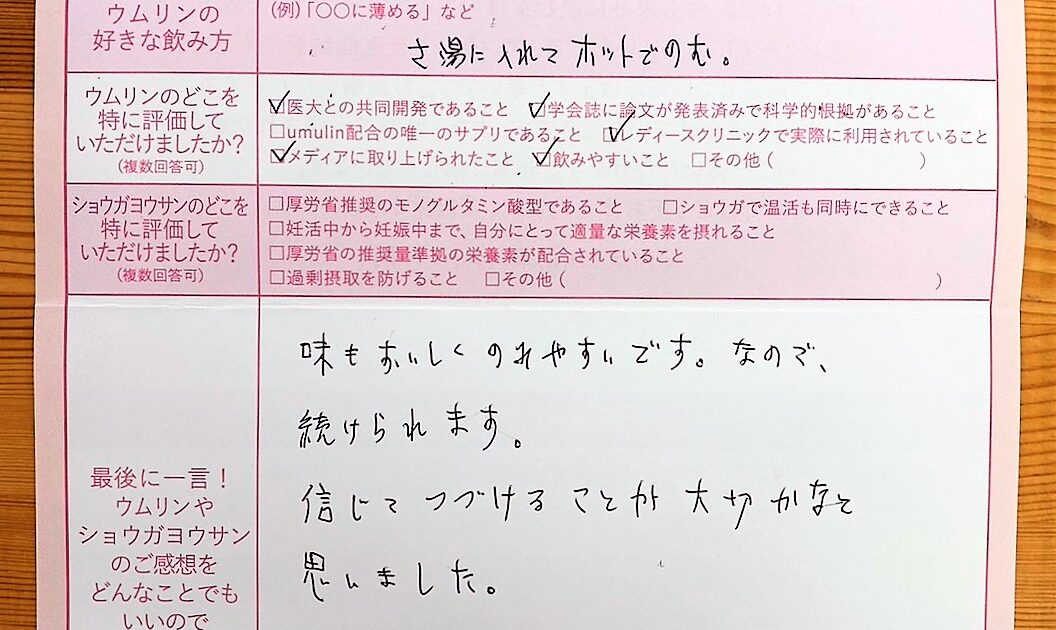 ウムリンの
好きな飲み方
(例)「〇〇に薄める」など
さ湯に入れてホットでのむ。
ウムリンのどこを
特に評価して
いただけましたか?
(複数回答可)
☑医大との共同開発であること ☑学会誌に論文が発表済みで科学的根拠があること
□umulin配合の唯一のサプリであること ☑レディースクリニックで実際に利用されていること
☑メディアに取り上げられたこと ☑飲みやすいこと □その他( )
ショウガヨウサンのどこを
特に評価して
いただけましたか?
(複数回答可)
□厚労省推奨のモノグルタミン酸型であること □ショウガで温活も同時にできること
□妊活中から妊娠中まで、自分にとって適量な栄養素を摂れること
□厚労省の推奨量準拠の栄養素が配合されていること
□過剰摂取を防げること □その他( )
最後に一言!
ウムリンや
ショウガヨウサン
のご感想を
どんなことでも
いいので
味もおいしくのみやすいです。なので、
続けられます。
信じてつづけることが大切かなと
思いました。